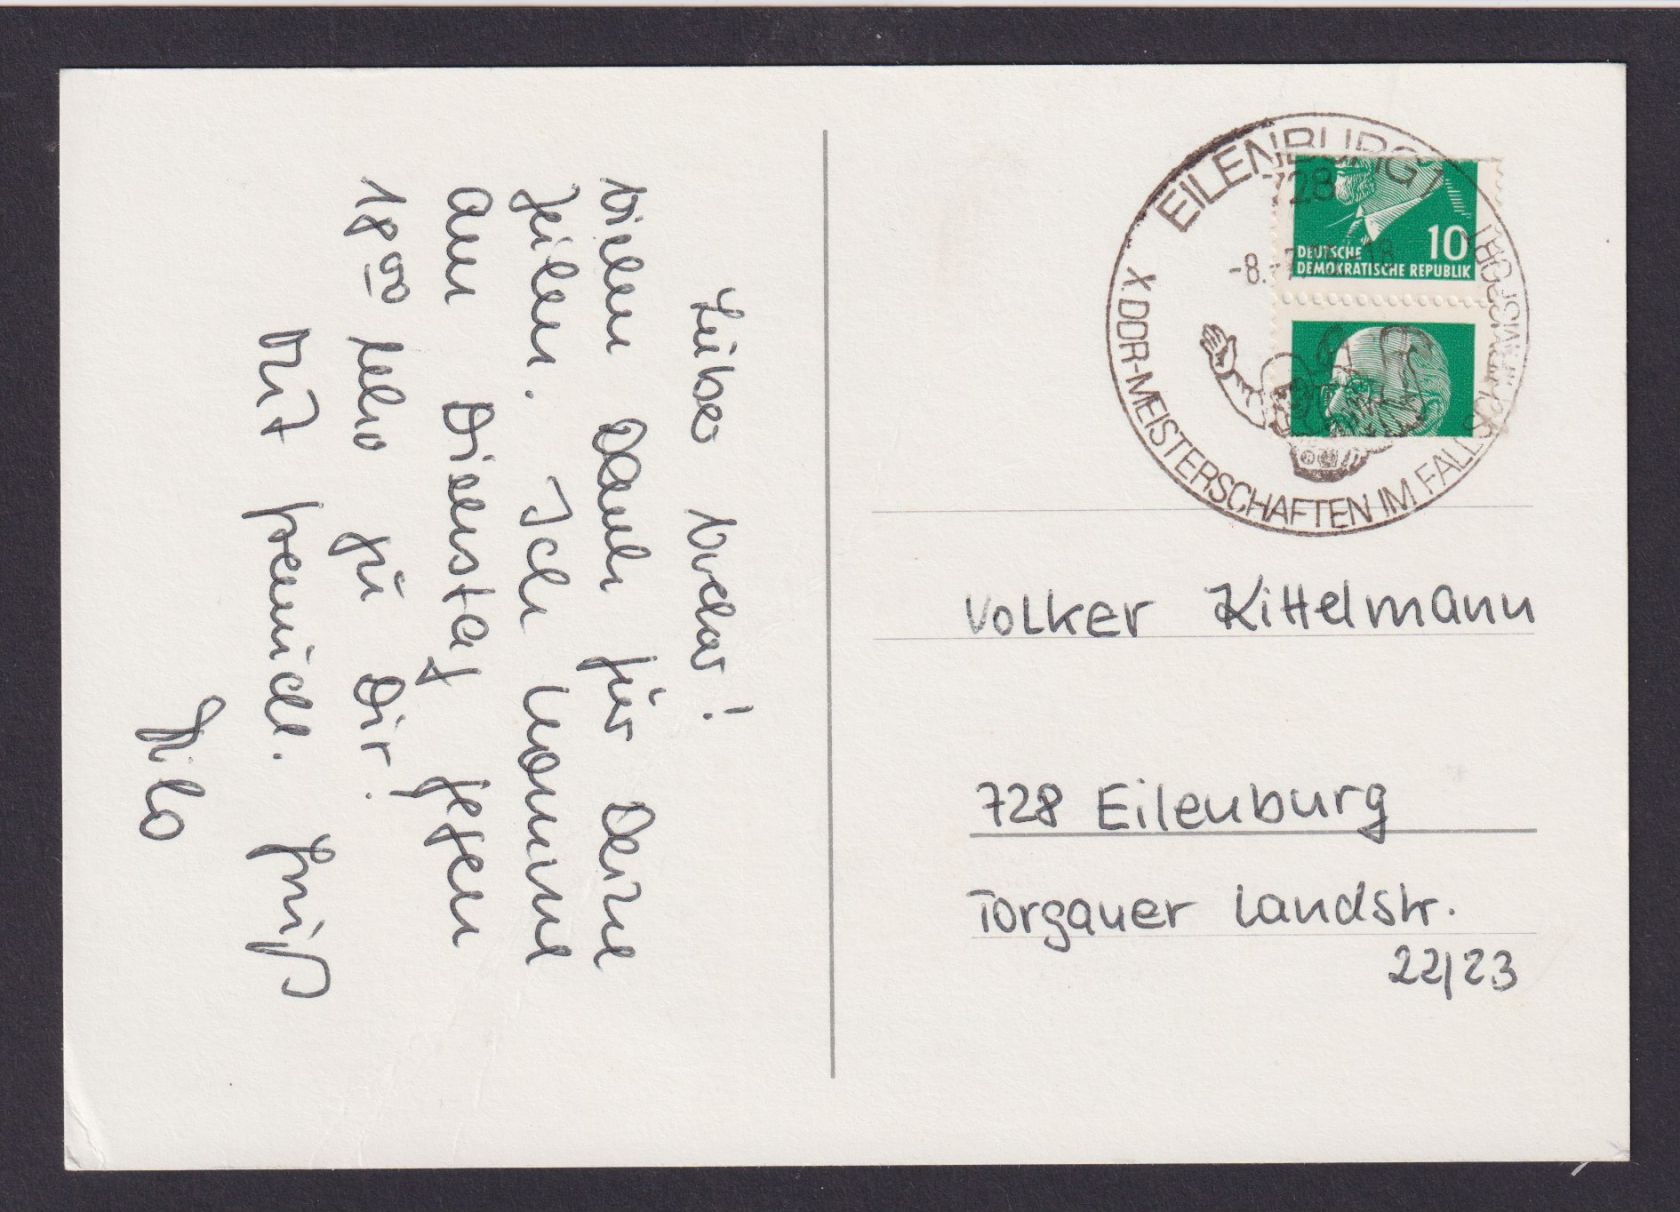 Lieber Volker!
Vielen Dank für Deine
Zeilen. Ich komme
am Dienstag gegen
18 00 Uhr zu Dir!
Mit freundl. Gruß
Tilo
EILENBURG 1
728
-8.
18
X. DDR-MEISTERSCHAFTEN IM FALLSCHIRMSPORT
10
DEUTSCHE
DEMOKRATISCHE REPUBLIK
Volker Kittelmann
728 Eilenburg
Torgauer Landstr.
22/23